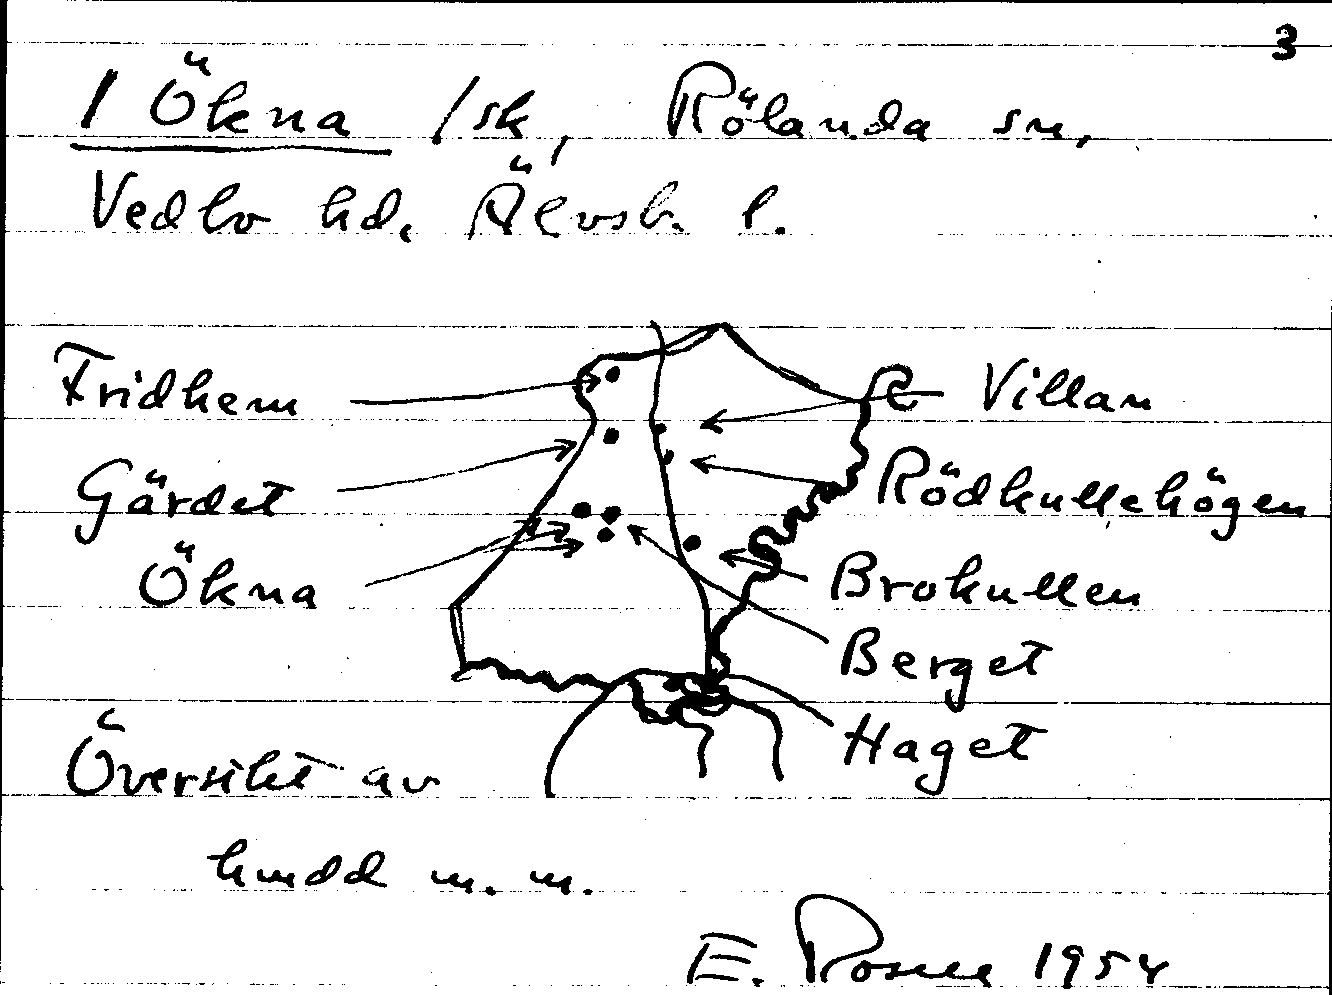 3
1 Ökna /sk, Rölanda sn,
Vedbo hd. Älvsb. l.
Fridhem
Villan
Gärdet
Rödkullehögen
Ökna
Brokullen
Berget
Haget
Översikt av
hmdd m. m.
E. 1954